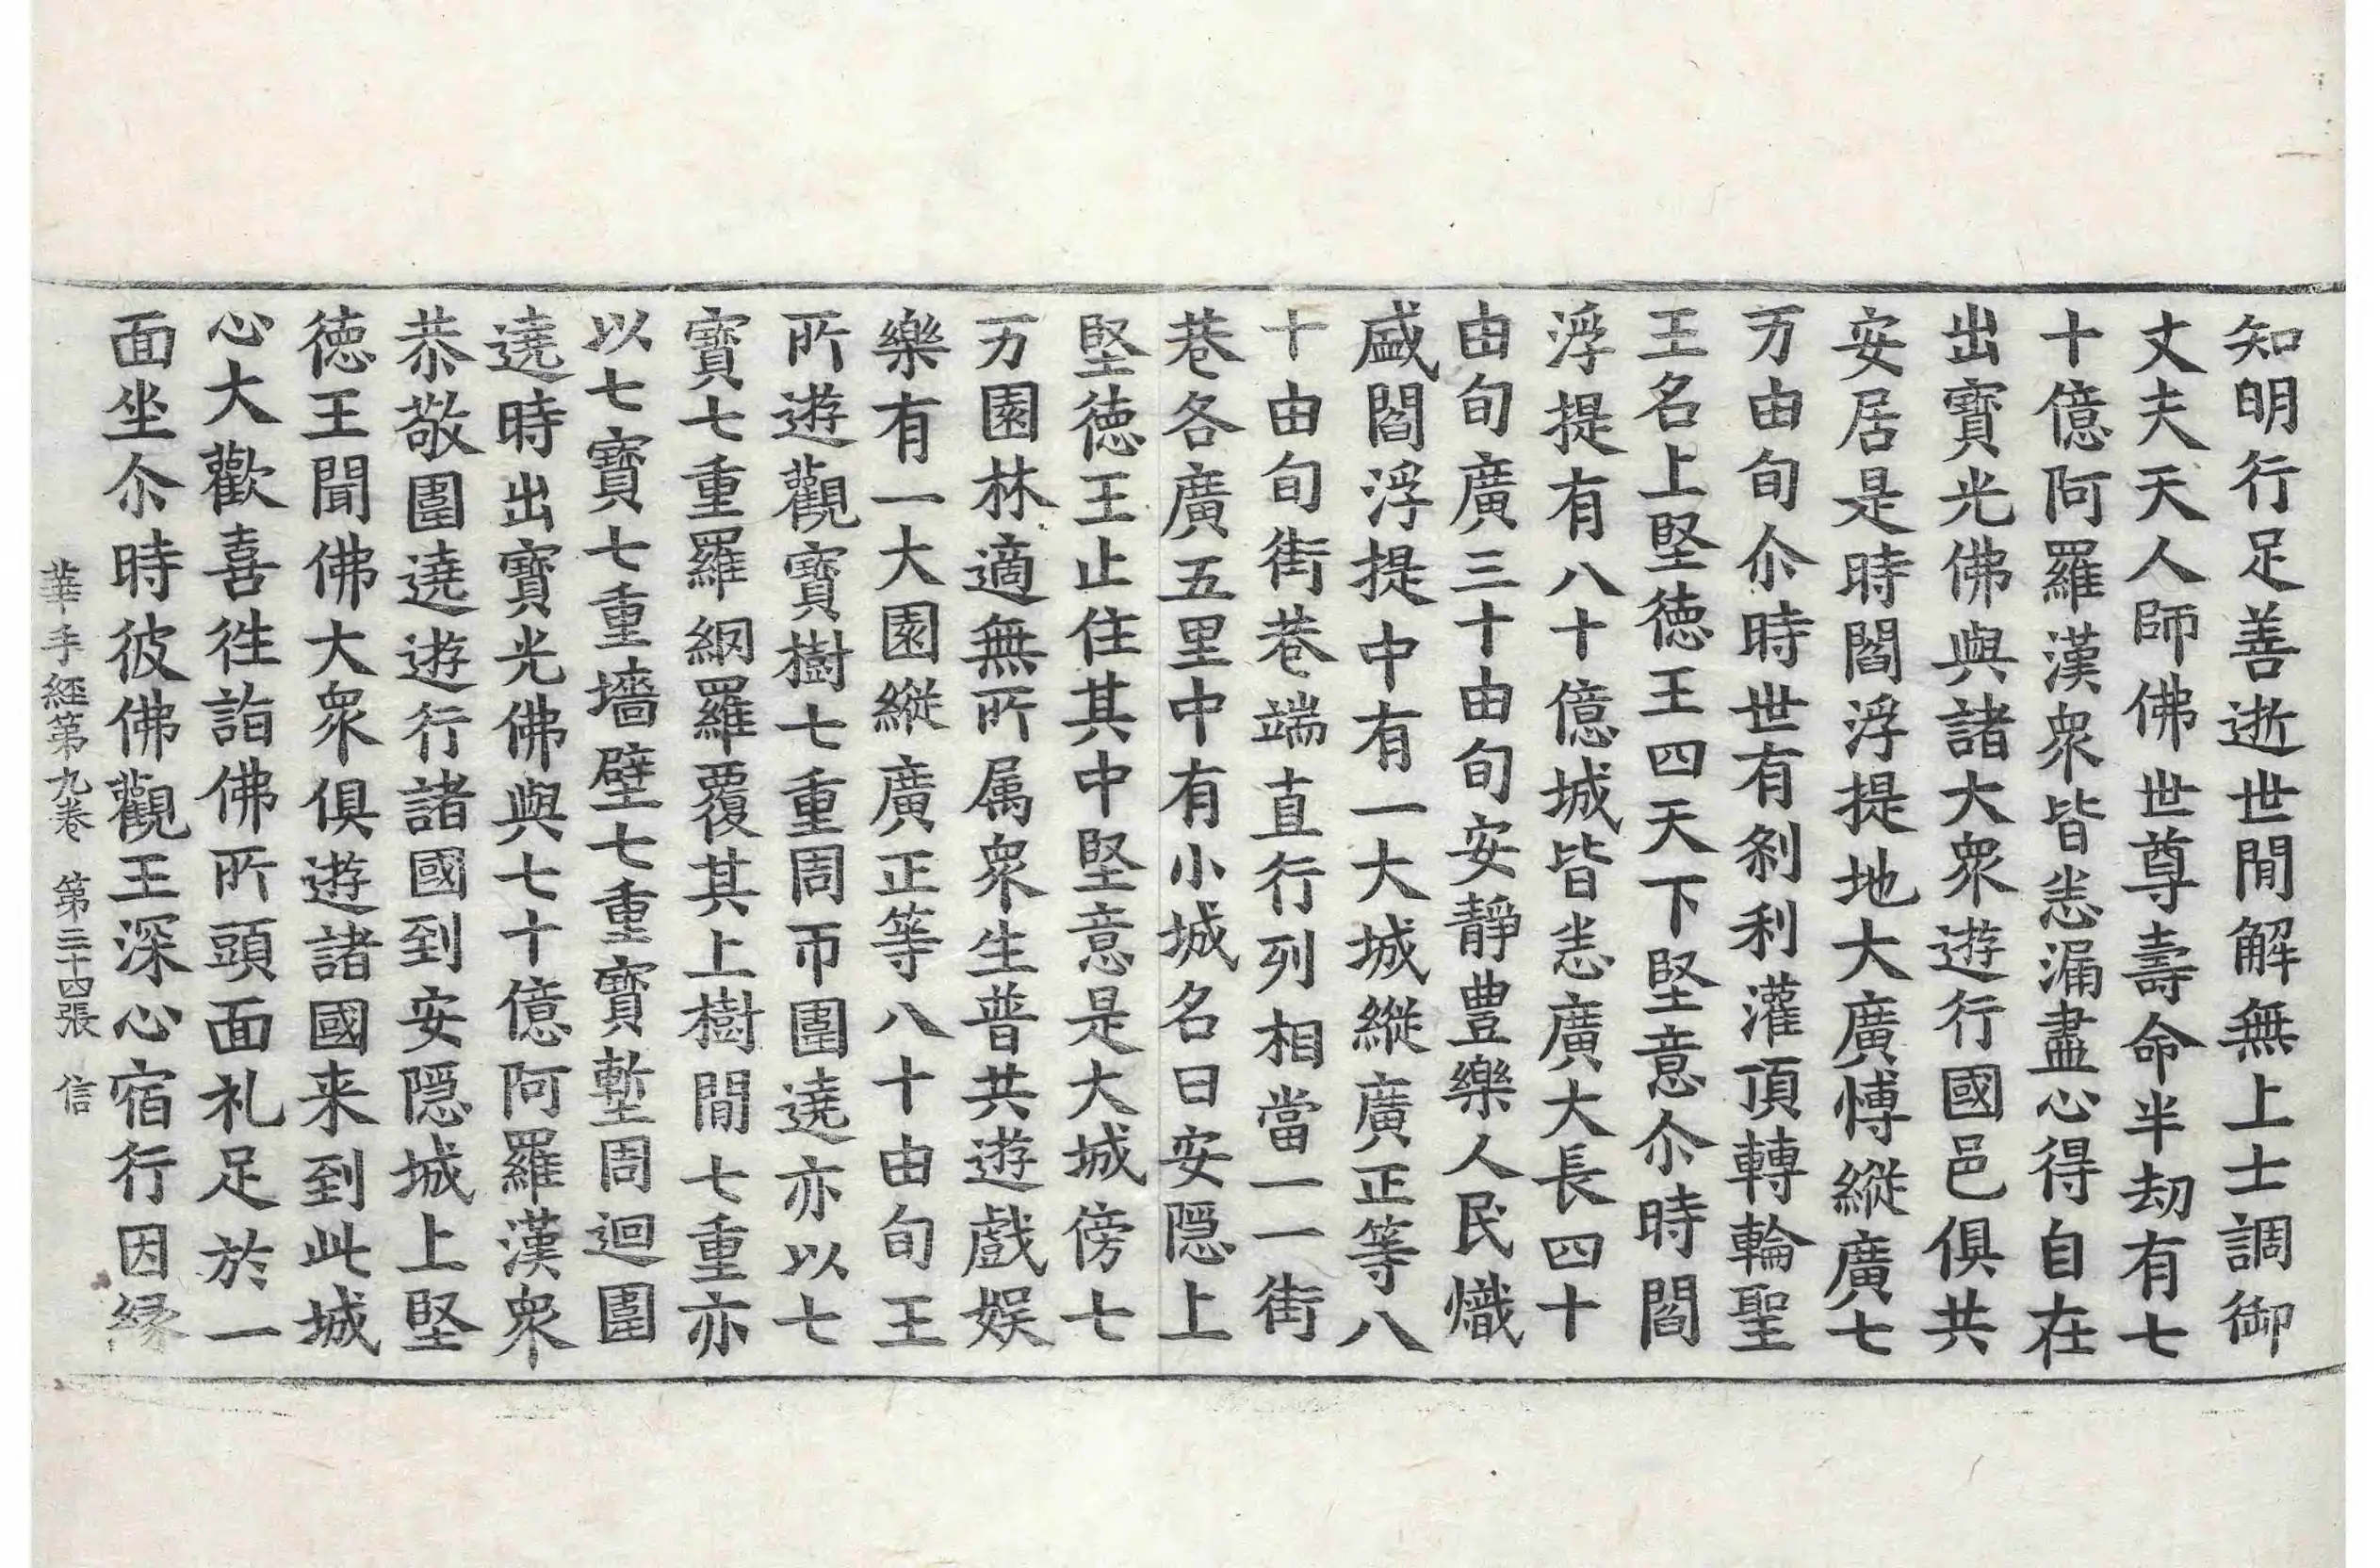 知明行足善逝世閒解無上士調御
丈夫天人師佛世尊壽命半劫有七
十億阿羅漢衆皆悉漏盡心得自在
出寶光佛與諸大衆遊行國邑俱共
安居是時閻浮提地大廣愽縱廣七
万由旬尒時世有剎利灌頂轉輪聖
王名上堅徳王四天下堅意尒時閻
浮提有八十億城皆悉廣大長四十
由旬廣三十由旬安靜豊樂人民熾
盛閻浮提中有一大城縱廣正等八
十由旬街巷端直行列相當一一街
巷各廣五里中有小城名曰安隠上
堅徳王止住其中堅意是大城傍七
万園林適無所属衆生普共遊戲娱
樂有一大園縱廣正等八十由旬王
所遊觀寶樹七重周帀圍遶亦以七
寶七重羅網羅覆其上樹閒七重亦
以七寶七重墻壁七重寶塹周迴圍
遶時出寶光佛與七十億阿羅漢衆
恭敬圍遶遊行諸國到安隠城上堅
徳王聞佛大衆俱遊諸國来到此城
心大歡喜徃詣佛所頭面礼足於一
面坐尒時彼佛觀王深心宿行因縁
華手經第九卷 第三十四張 信